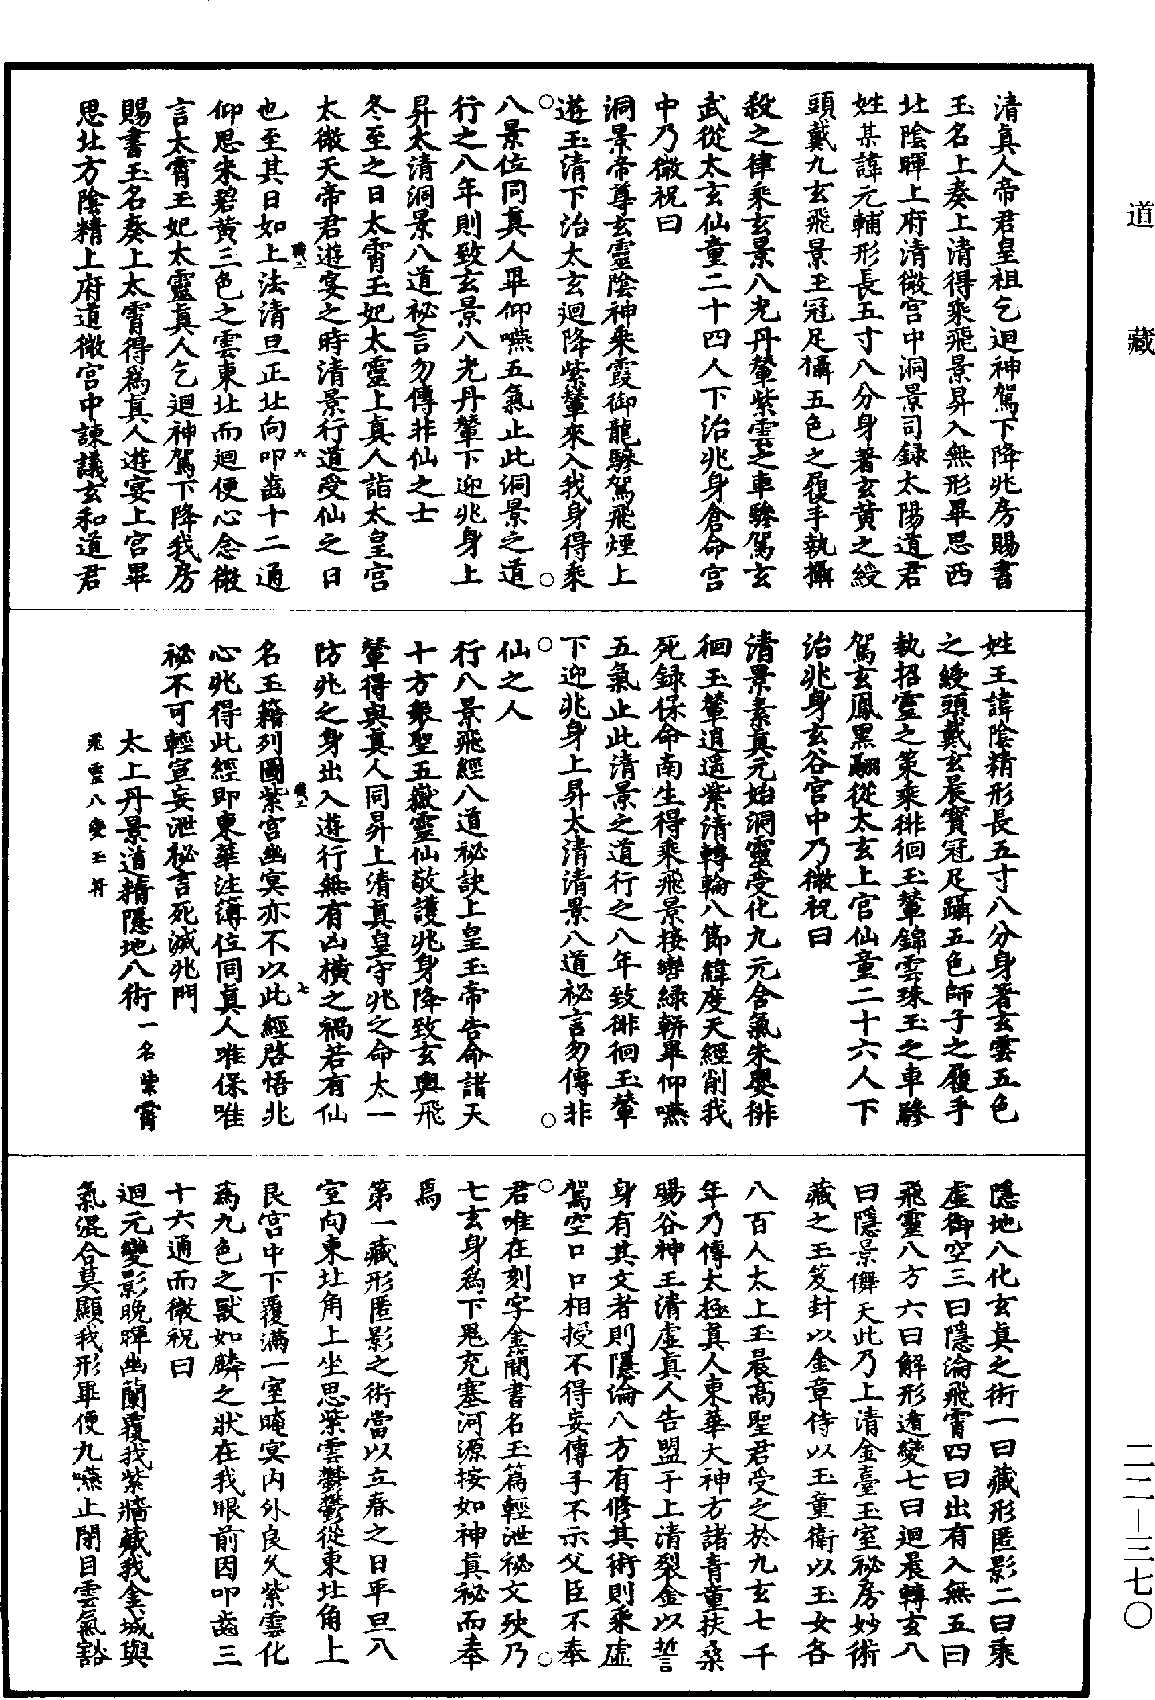 道藏
二二—三七〇
清真人帝君皇祖乞迴神駕下降兆房賜書
玉名上奏上清得乘飛景昇入無形畢思西
北陰暉上府清微宮中洞景司録太陽道君
姓某諱元輔形長五寸八分身著玄黃之綬
頭戴九玄飛景玉冠足躡五色之履手執攝
殺之律乘玄景八光丹輦紫雲之車驂駕玄
武從太玄仙童二十四人下治兆身倉命宮
中乃微祝曰
洞景帝尊玄靈陰神乘霞御龍驂駕飛煙上
遊玉清下治太玄迴降紫輦來入我身得乘
八景位同真人畢仰嚥五氣止此洞景之道
行之八年則致玄景八光丹輦下迎兆身上
昇太清洞景八道祕言勿傳非仙之士
冬至之日太霄玉妃太靈上真人詣太皇宮
太微天帝君遊宴之時清景行道受仙之日
也至其日如上法清旦正北向叩齒十二通
仰思朱碧黃三色之雲東北而迴便心念微
言太霄玉妃太靈真人乞迴神駕下降我房
賜書玉名奏上太霄得為真人遊宴上宮畢
思北方陰精上府道微宮中諫議玄和道君
姓王諱陰精形長五寸八分身著玄雲五色
之綬頭戴玄晨寶冠足躡五色師子之履手
執招靈之策乘徘徊玉輦錦雲珠玉之車驂
駕玄鳳黑翮從太玄上宮仙童二十六人下
治兆身玄谷宮中乃微祝曰
清景素真元始洞靈受化九元含氣朱嬰徘
徊玉輦逍遥紫清轉輪八節緯度天經削我
死録保命南生得乘飛景接轡綠軿畢仰嚥
五氣止此清景之道行之八年致徘徊玉輦
下迎兆身上昇太清清景八道祕言勿傳非
仙之人
行八景飛經八道祕訣上皇玉帝告命諸天
十方衆聖五嶽靈仙敬護兆身降致玄輿飛
輦得與真人同昇上清真皇守兆之命太一
防兆之身出入遊行無有凶橫之禍若有仙
名玉籍列圖紫宮幽冥亦不以此經啓悟兆
心兆得此經即東華注簿位同真人唯保唯
祕不可輕宣妄泄祕言死滅兆門
太上丹景道精隱地八術一名紫霄
飛靈八變玉符
隱地八化玄真之術一曰藏形匿影二曰乘
虛御空三曰隱淪飛霄四曰出有入無五曰
飛靈八方六曰解形遁變七曰迴晨轉玄八
曰隱景儛天此乃上清金臺玉室祕房妙術
藏之玉笈封以金章侍以玉童衛以玉女各
八百人太上玉晨高聖君受之於九玄七千
年乃傳太極真人東華大神方諸青童扶桑
賜谷神王清虛真人告盟于上清裂金以誓
身有其文者則隱淪八方有修其術則乘虛
駕空口口相授不得妄傳子不示父臣不奉
君唯在刻字金蘭書名玉篇輕泄秘文殃乃
七玄身為下鬼充塞河源按如神真秘而奉
焉
第一藏形匿影之術當以立春之日平旦八
室向東北角上坐思紫雲欝欝從東北角上
艮宮中下覆滿一室晻冥內外良久紫雲化
為九色之獸如麟之狀在我眼前因叩齒三
十六通而微祝曰
迴元變影晚暉幽蘭覆我紫牆藏我金城與
氣混合莫顯我形畢便九嚥止閉目雲氣豁